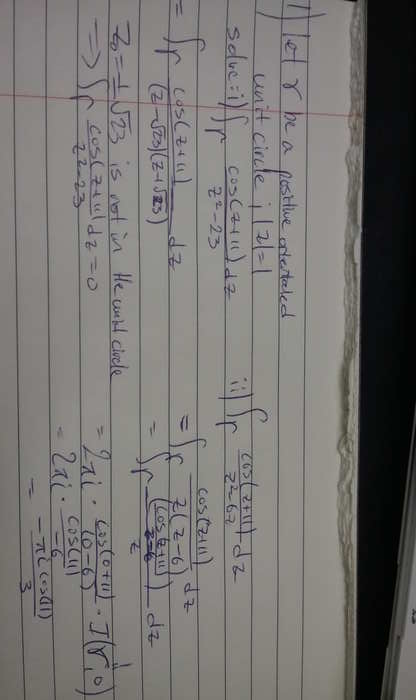 1) Let γ be a positive orientated
unit circle, |z|=1
solve: i) ∫γ cos(z+11)/(z²-23) dz
= ∫γ cos(z+11)/((z-√23)(z+√23)) dz
z₀ = ±√23 is not in the unit circle
=> ∫γ cos(z+11)/(z²-23) dz = 0
ii) ∫γ cos(z+11)/(z²-6z) dz
= ∫γ cos(z+11)/(z(z-6)) dz
= ∫γ (cos(z+11)/(z-6))/z dz
= 2πi · cos(0+11)/(0-6) · I(γ,0)
= 2πi · cos(11)/-6
= -πi cos(11)/3